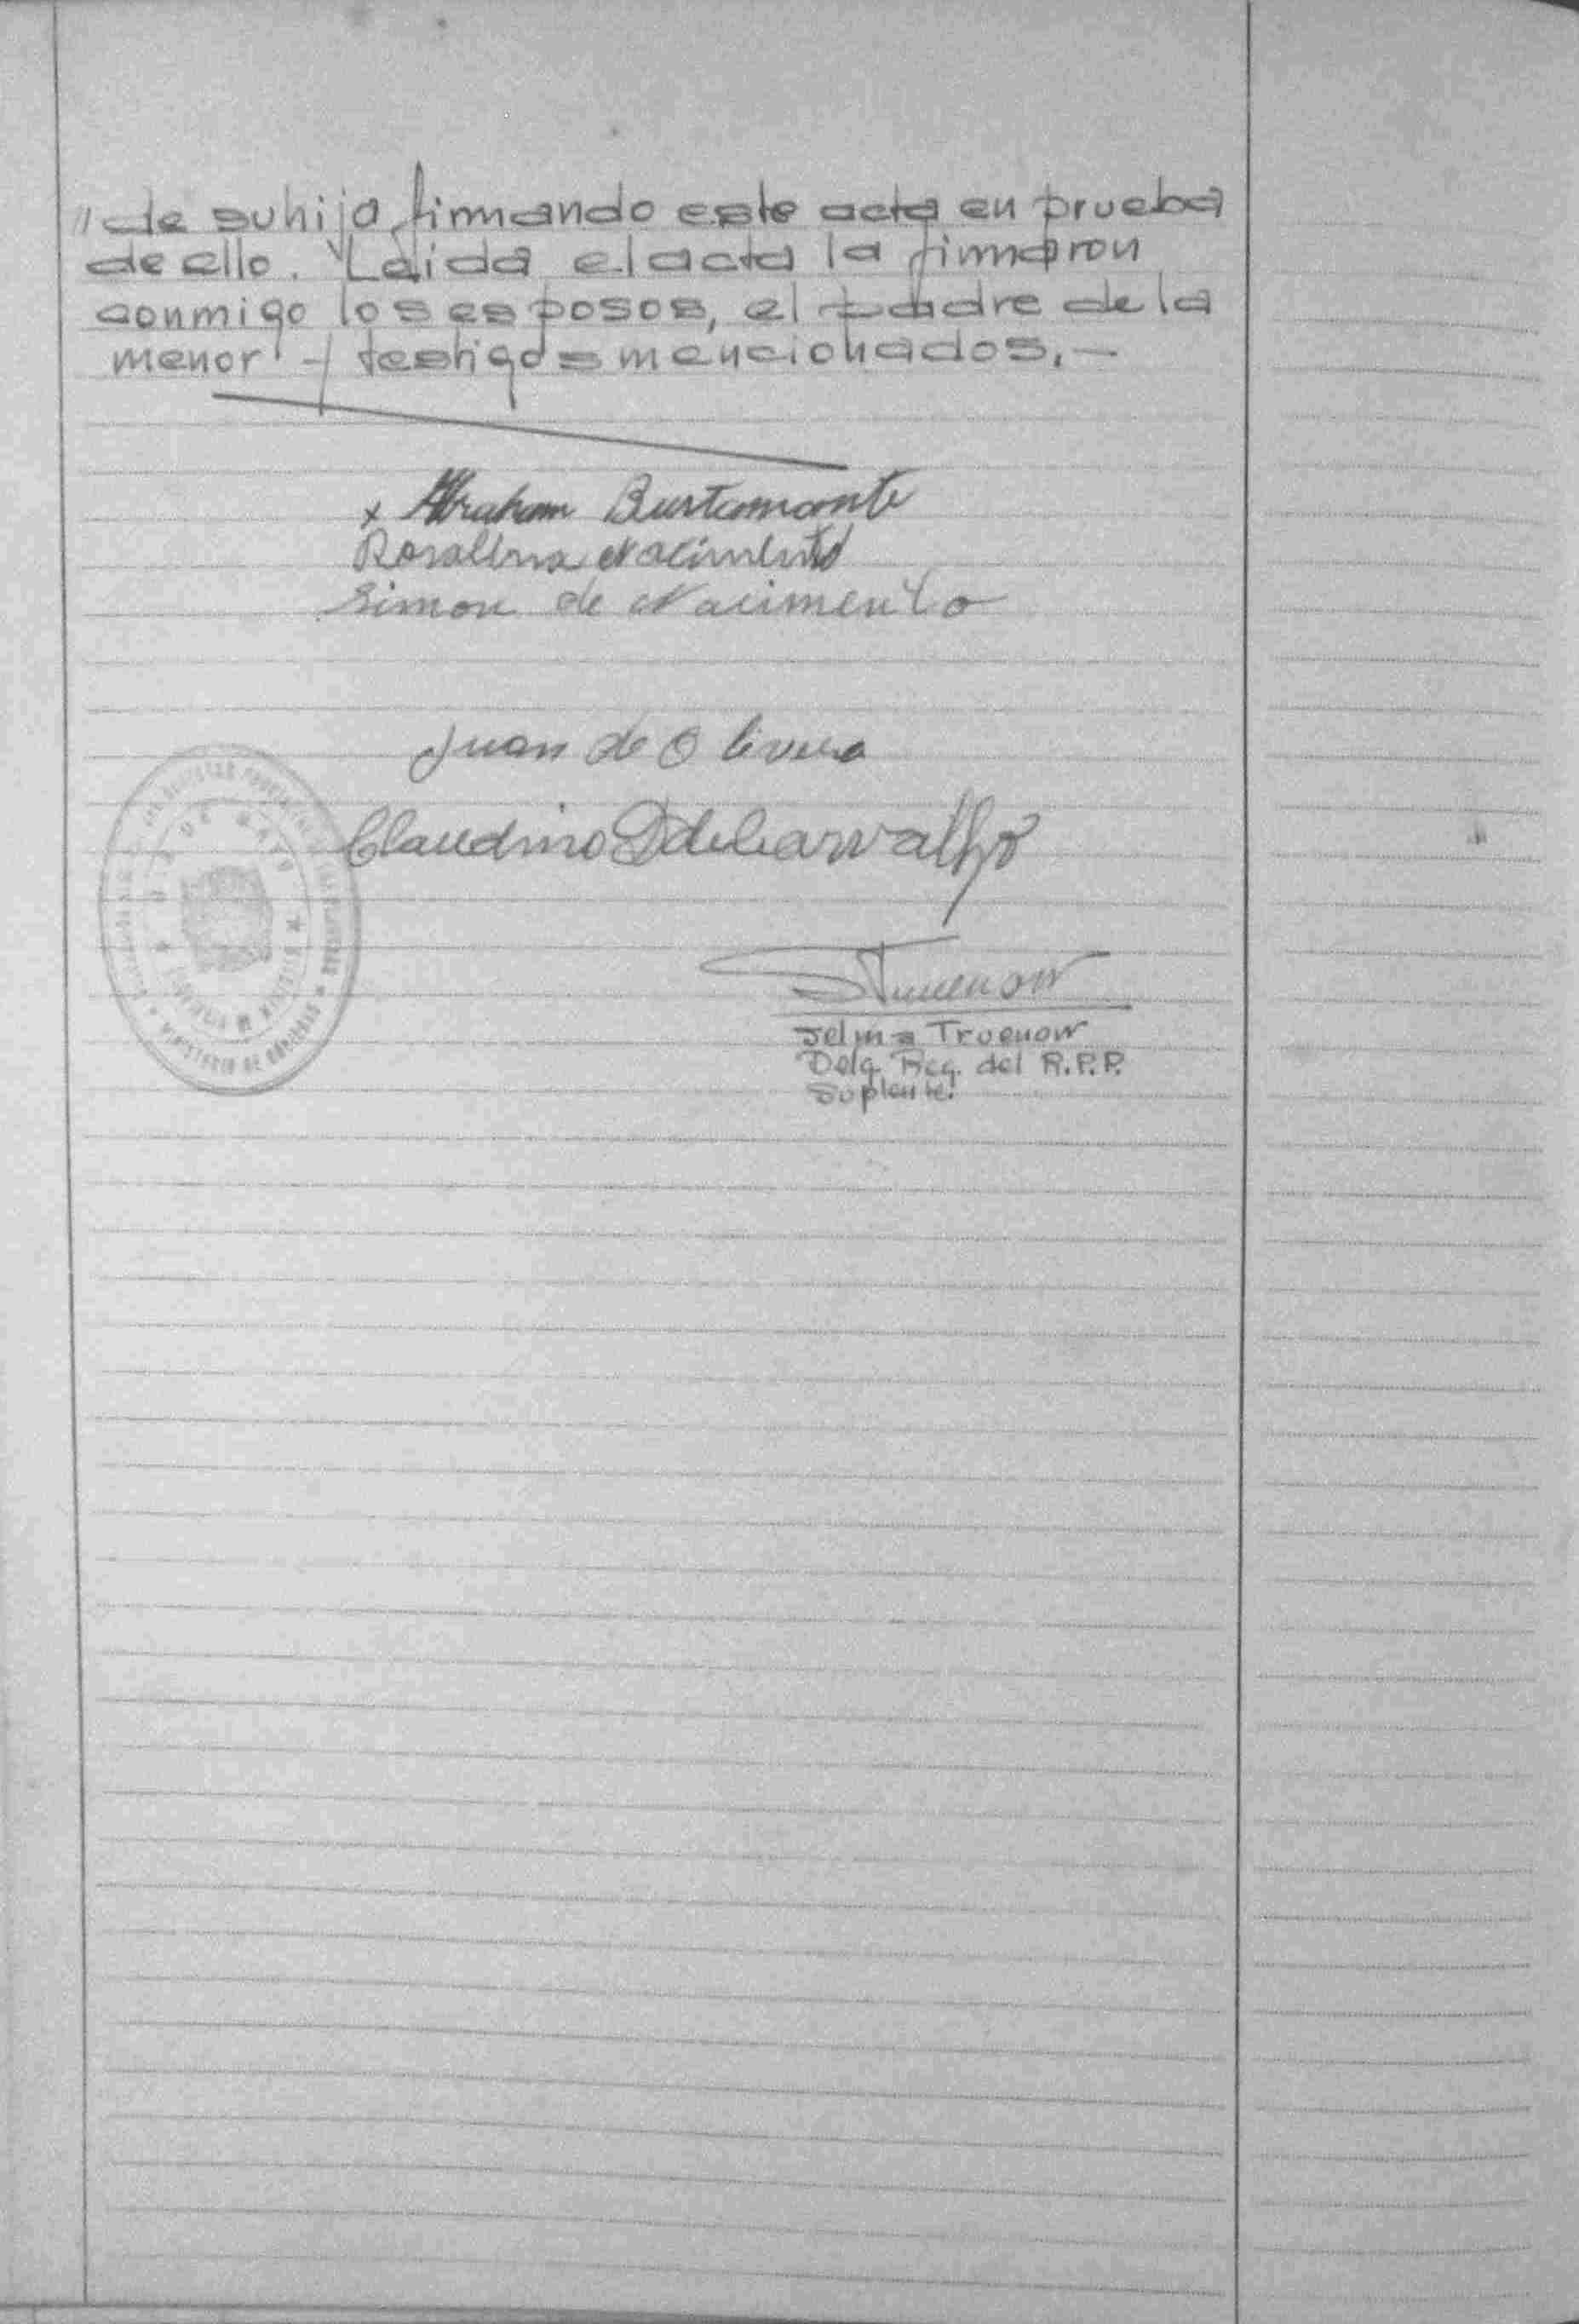 " de su hija firmando este acta en prueba
de ello. Leida el acta la firmaron
conmigo los esposos, el padre de la
menor y testigos mencionados.-
x Abraham Bustamante
Rosalina Nacimento
Simon de Nacimento
Juan de Olivera
Claudino D de Carvalho
Truenow
Jelma Truenow
Delg. Reg. del R.P.P.
Suplente.
25 DE MAYO
MINISTERIO DE GOBIERNO